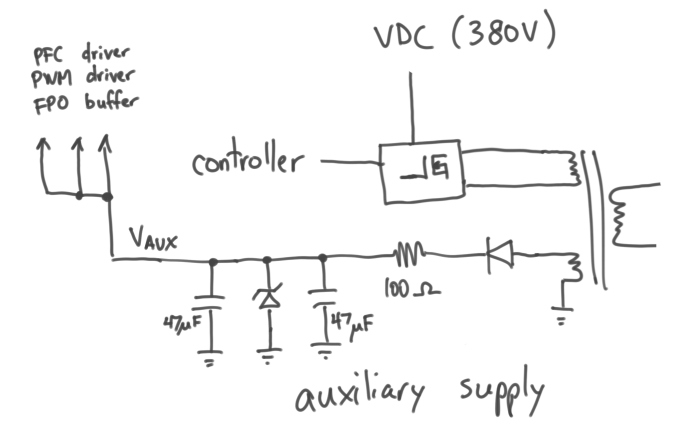 VDC (380V)
PFC driver
PWM driver
FPO buffer
controller
VAUX
100Ω
47μF
47μF
auxiliary supply